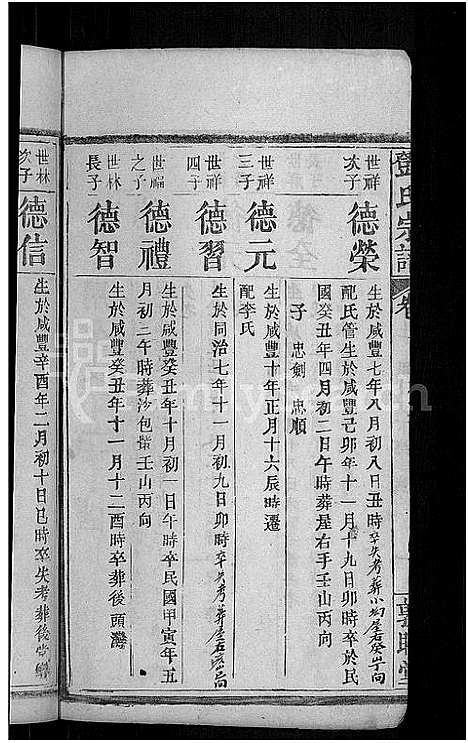 鄧氏宗譜
卷
世祥次子
德榮
生於咸豐七年八月初八日丑時卒失考葬小
屋右癸山
向
配氏管生於咸豐己卯年十一月十九日卯時卒於民
國癸丑年四月初二日午時葬屋右手壬山丙向
子 忠劍 忠順
世祥三子
德元
生於咸豐十年正月十六辰時遷
配李氏
世祥四子
德習
生於同治七年十一月初九日卯時卒失考葬屋右
世福之子
德禮
生於咸豐癸丑年十月初一日午時卒民國甲寅年五
月初三午時葬沙包嘴壬山丙向
世林長子
德智
生於咸豐癸丑年十一月十二酉時卒葬後頭灣
世林次子
德信
生於咸豐辛酉年二月初十日巳時卒失考葬後堂